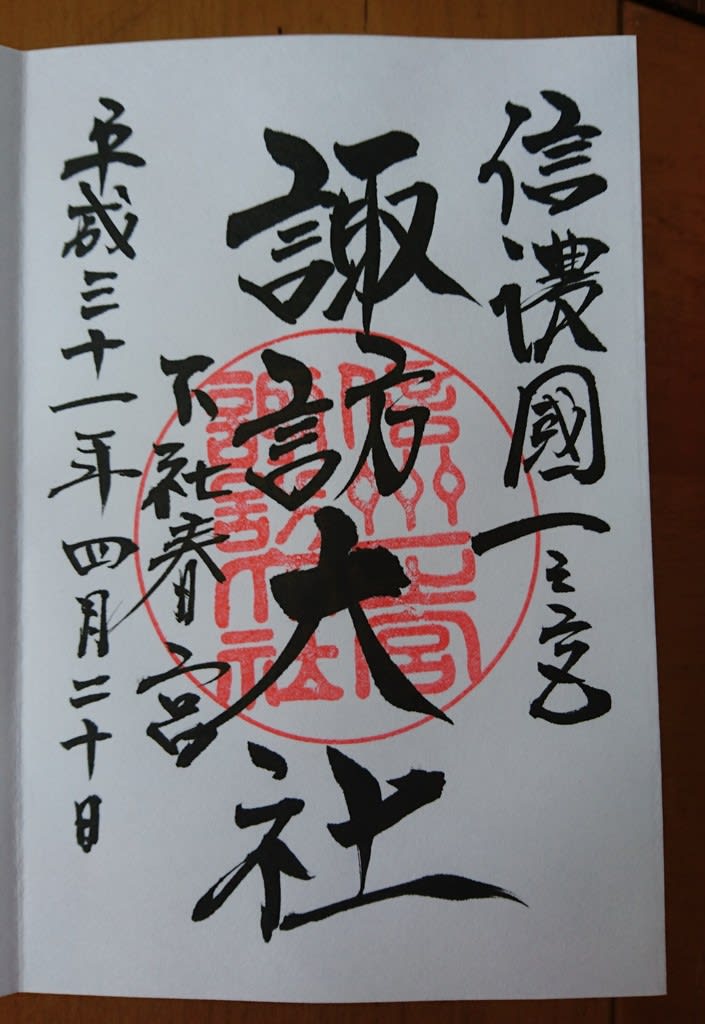 信濃國一之宮
諏訪大社
下社春宮
平成三十一年四月二十日